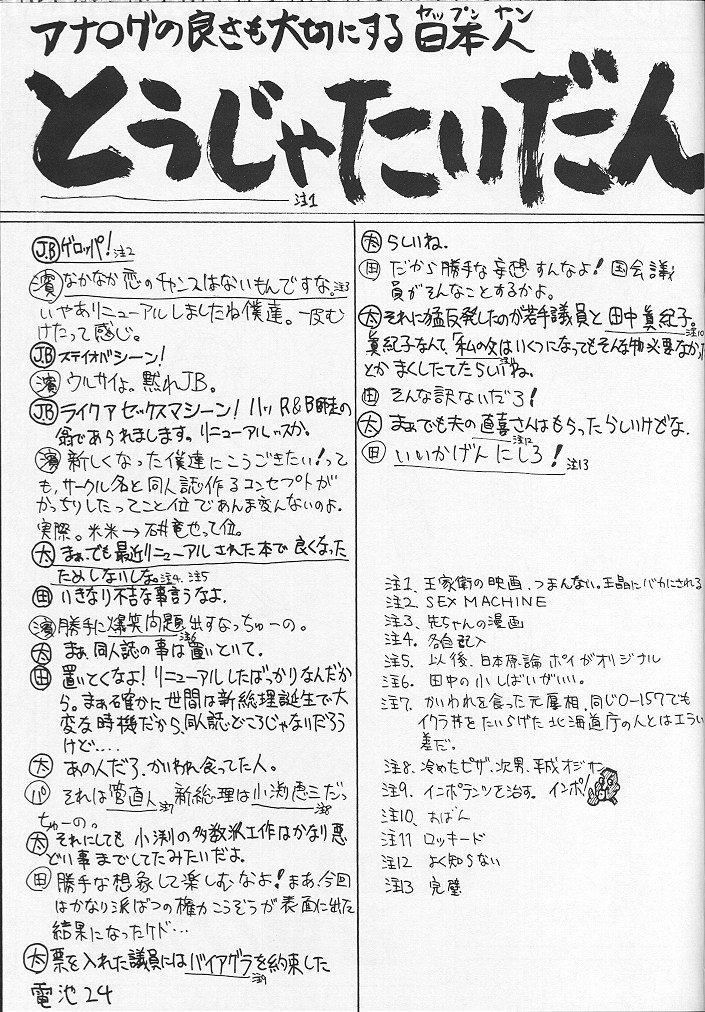 アナログの良さも大切にする 日本人
ヤップン ヤン
とうじゃたいだん
注1
J.B ゲロッパ! 注2
濱 なかなか恋のチャンスはないもんですな。注3
いやありニューアルしましたね僕達。一皮む
けたって感じ。
JB ステイオバシーン!
濱 ウルサイよ。黙れJB。
JB ライクアセックスマシーン! ハッ R&B師走の
翁であられまします。リニューアルッスか。
濱 新しくなった僕達にこうごきたい!って
も、サークル名と同人誌作るコンセプトが
かっちりしたってこと位であんま変んないのよ.
実際。米米→石井竜也って位。
太 まぁでも最近リニューアルされた本で良くなった
ためしないしな。注4. 注5
田 いきなり不吉な事言うなよ.
濱 勝手に爆笑問題出すなっちゅーの。
注6
太 まぁ同人誌の事は置いといて.
田 置いとくなよ!リニューアルしたばっかりなんだか
ら。まぁ確かに世間は新総理誕生で大
変な時機だから、同人誌どころじゃないだろう
けど‥‥
太 あの人だろ、かいわれ食ってた人。
パ それは菅直人 新総理は小渕恵三だっ
注7 注8
ちゅーの。
太 それにしても 小渕の多数派工作はかなり悪
どい事までしてたみたいだよ.
田 勝手な想象して楽しむなよ!まあ、今回
はかなり派ばつの権力こうぞうが表面に出た
結果になったケド…
太 票を入れた議員にはバイアグラを約束した
注9
電池24
太 らしいね.
田 だから勝手な妄想すんなよ!国会議
員がそんなことするかよ。
太 それに猛反発したのが若手議員と田中眞紀子。
注10
眞紀子なんて、「私の父はいくつになってもそんな物必要なかった」
注11
とかまくしたててたらしいね.
田 そんな訳ないだろ!
太 まぁでも夫の直喜さんはもらったらしいけどな.
注12
田 いいかげんにしろ!
注13
注1、王家衛の映画、つまんない。王晶にバカにされる
注2 SEX MACHINE
注3、先ちゃんの漫画
注4. 各自記入
注5. 以後、日本原論ポイがオリジナル
注6. 田中の小しばいがいい。
注7 かいわれを食った元厚相、同じO-157でも
イクラ丼をたいらげた北海道庁の人とはエライ
差だ。
注8、冷めたピザ、次男、平成オジサン
注9. インポテンツを治す。インポ!
注10. おばん
注11 ロッキード
注12 よく知らない
注13 完璧